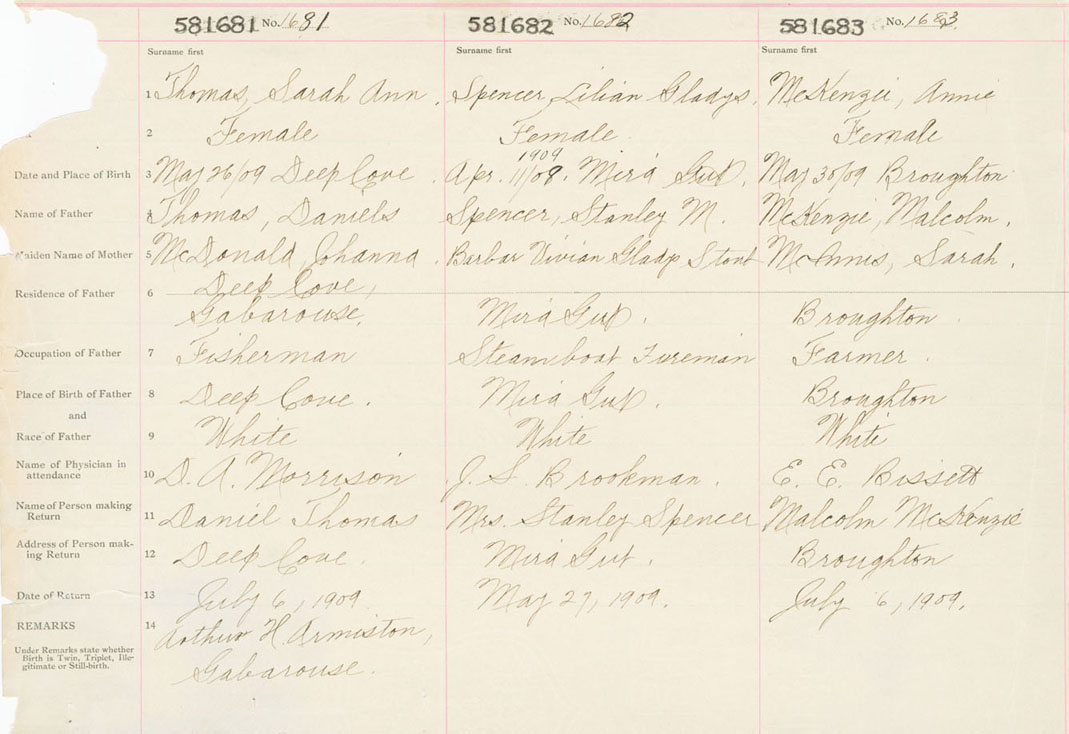 581681 No. 1681 581682 No. 1682 581683 No. 1683
Surname first Surname first Surname first
1 Thomas, Sarah Ann. Spencer, Lilian Gladys. McKenzie, Annie
2 Female Female. Female
1909
Date and Place of Birth 3 May 26/09 Deep Cove. Apr. 11/08. Mira Gut. May 30/09 Broughton
Name of Father 4 Thomas, Daniels Spencer, Stanley M. McKenzie, Malcolm.
Maiden Name of Mother 5 McDonald, Johanna. Barbar Vivian Gladys McInnes, Sarah.
Residence of Father 6 Deep Cove,
Gabarouse. Mira Gut. Broughton
Occupation of Father 7 Fisherman Steamboat Fireman Farmer.
Place of Birth of Father 8 Deep Cove. Mira Gut. Broughton
and
Race of Father 9 White White White
Name of Physician in
attendance 10 D. A. Morrison J. S. Brookman. E. E. Bissett
Name of Person making
Return 11 Daniel Thomas Mrs. Stanley Spencer Malcolm McKenzie
Address of Person mak-
ing Return 12 Deep Cove. Mira Gut. Broughton
Date of Return 13 July 6, 1909. May 27, 1909. July 6, 1909.
REMARKS 14 Arthur H. Armiston,
Under Remarks state whether
Birth is Twin, Triplet, Ille-
gitimate or Still-birth.
Gabarouse.